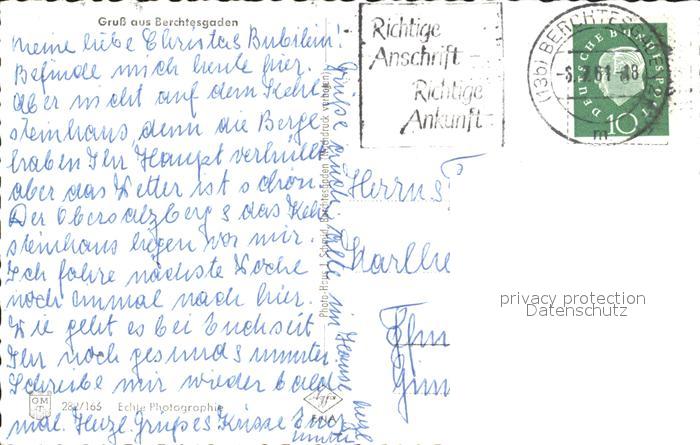 Gruß aus Berchtesgaden
meine liebe Christas Bubilein!
Befinde mich heute hier.
Aber nicht auf dem Kehl-
steinhaus denn die Berge
haben Ihr Haupt verhüllt
aber das Wetter ist schön.
Der Obersalzberg & das Kehl-
steinhaus liegen vor mir.
Ich fahre nächste Woche
noch einmal nach hier.
Wie geht es bei Euch seit
Ihr noch gesund & munter.
Schreibe mir wieder bald
mal. Herzl. Grüße & Küsse Eure
282/165 Echte Photographie
Photo-Hans J. Schmid, Berchtesgaden (Nachdruck verboten)
Grüße auch alle im Hause herzl.
Agfa
Richtige
Anschrift
Richtige
Ankunft
(13b) BERCHTES
61-18
m
DEUTSCHE BUNDESPOST
10
Herrn
Karlhe
privacy protection
Datenschutz